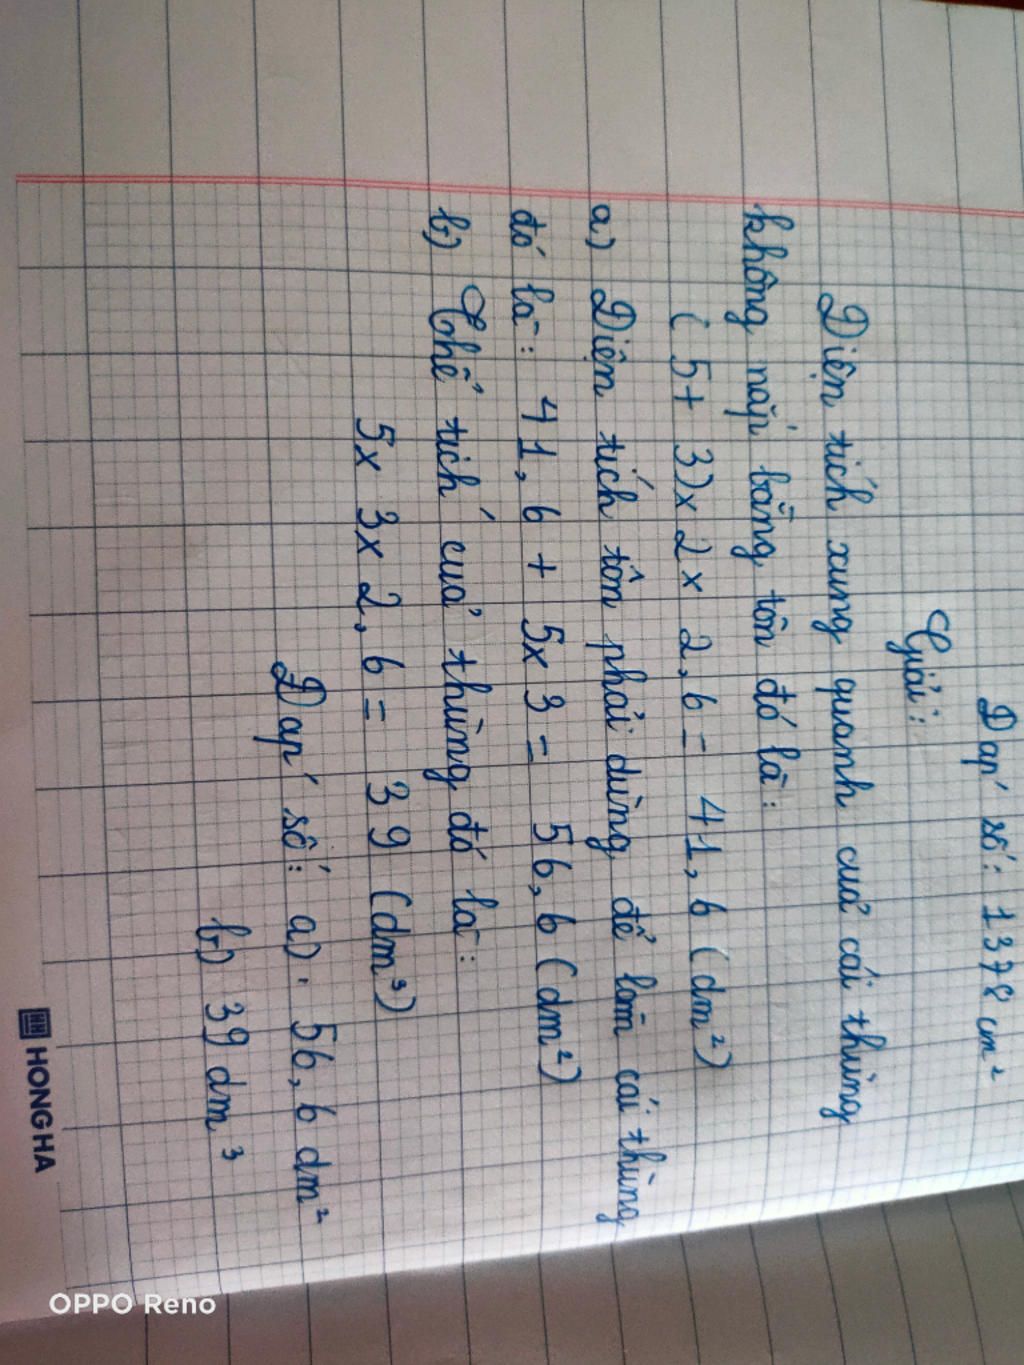 Đáp số: 1378 cm²
Giải:
Diện tích xung quanh của cái thùng
không nắp bằng tôn đó là:
( 5 + 3) x 2 x 2,6 = 41,6 (dm²)
a) Diện tích tôn phải dùng để làm cái thùng
đó là: 41,6 + 5 x 3 = 56,6 (dm²)
b) Thể tích của thùng đó là:
5 x 3 x 2,6 = 39 (dm³)
Đáp số: a) 56,6 dm²
b) 39 dm³
HONG HA
OPPO Reno